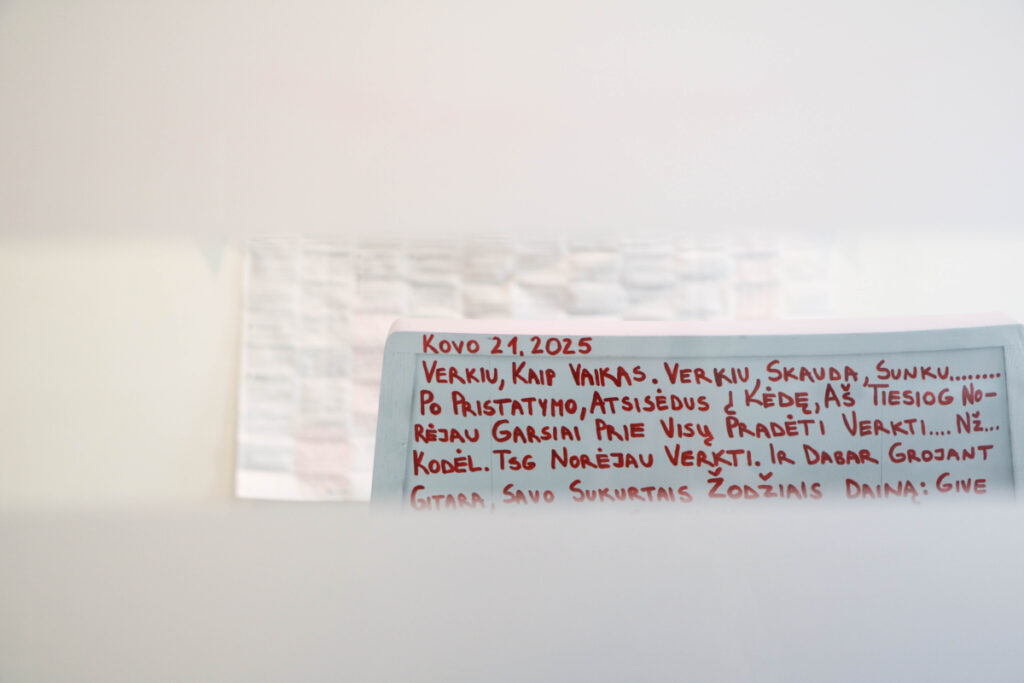 KOVO 21, 2025
VERKIU, KAIP VAIKAS. VERKIU, SKAUDA, SUNKU........
PO PRISTATYMO, ATSISĖDUS Į KĖDĘ, AŠ TIESIOG NO-
RĖJAU GARSIAI PRIE VISŲ PRADĖTI VERKTI.... NŽ...
KODĖL. TSG NORĖJAU VERKTI. IR DABAR GROJANT
GITARA, SAVO SUKURTAIS ŽODŽIAIS DAINĄ: GIVE